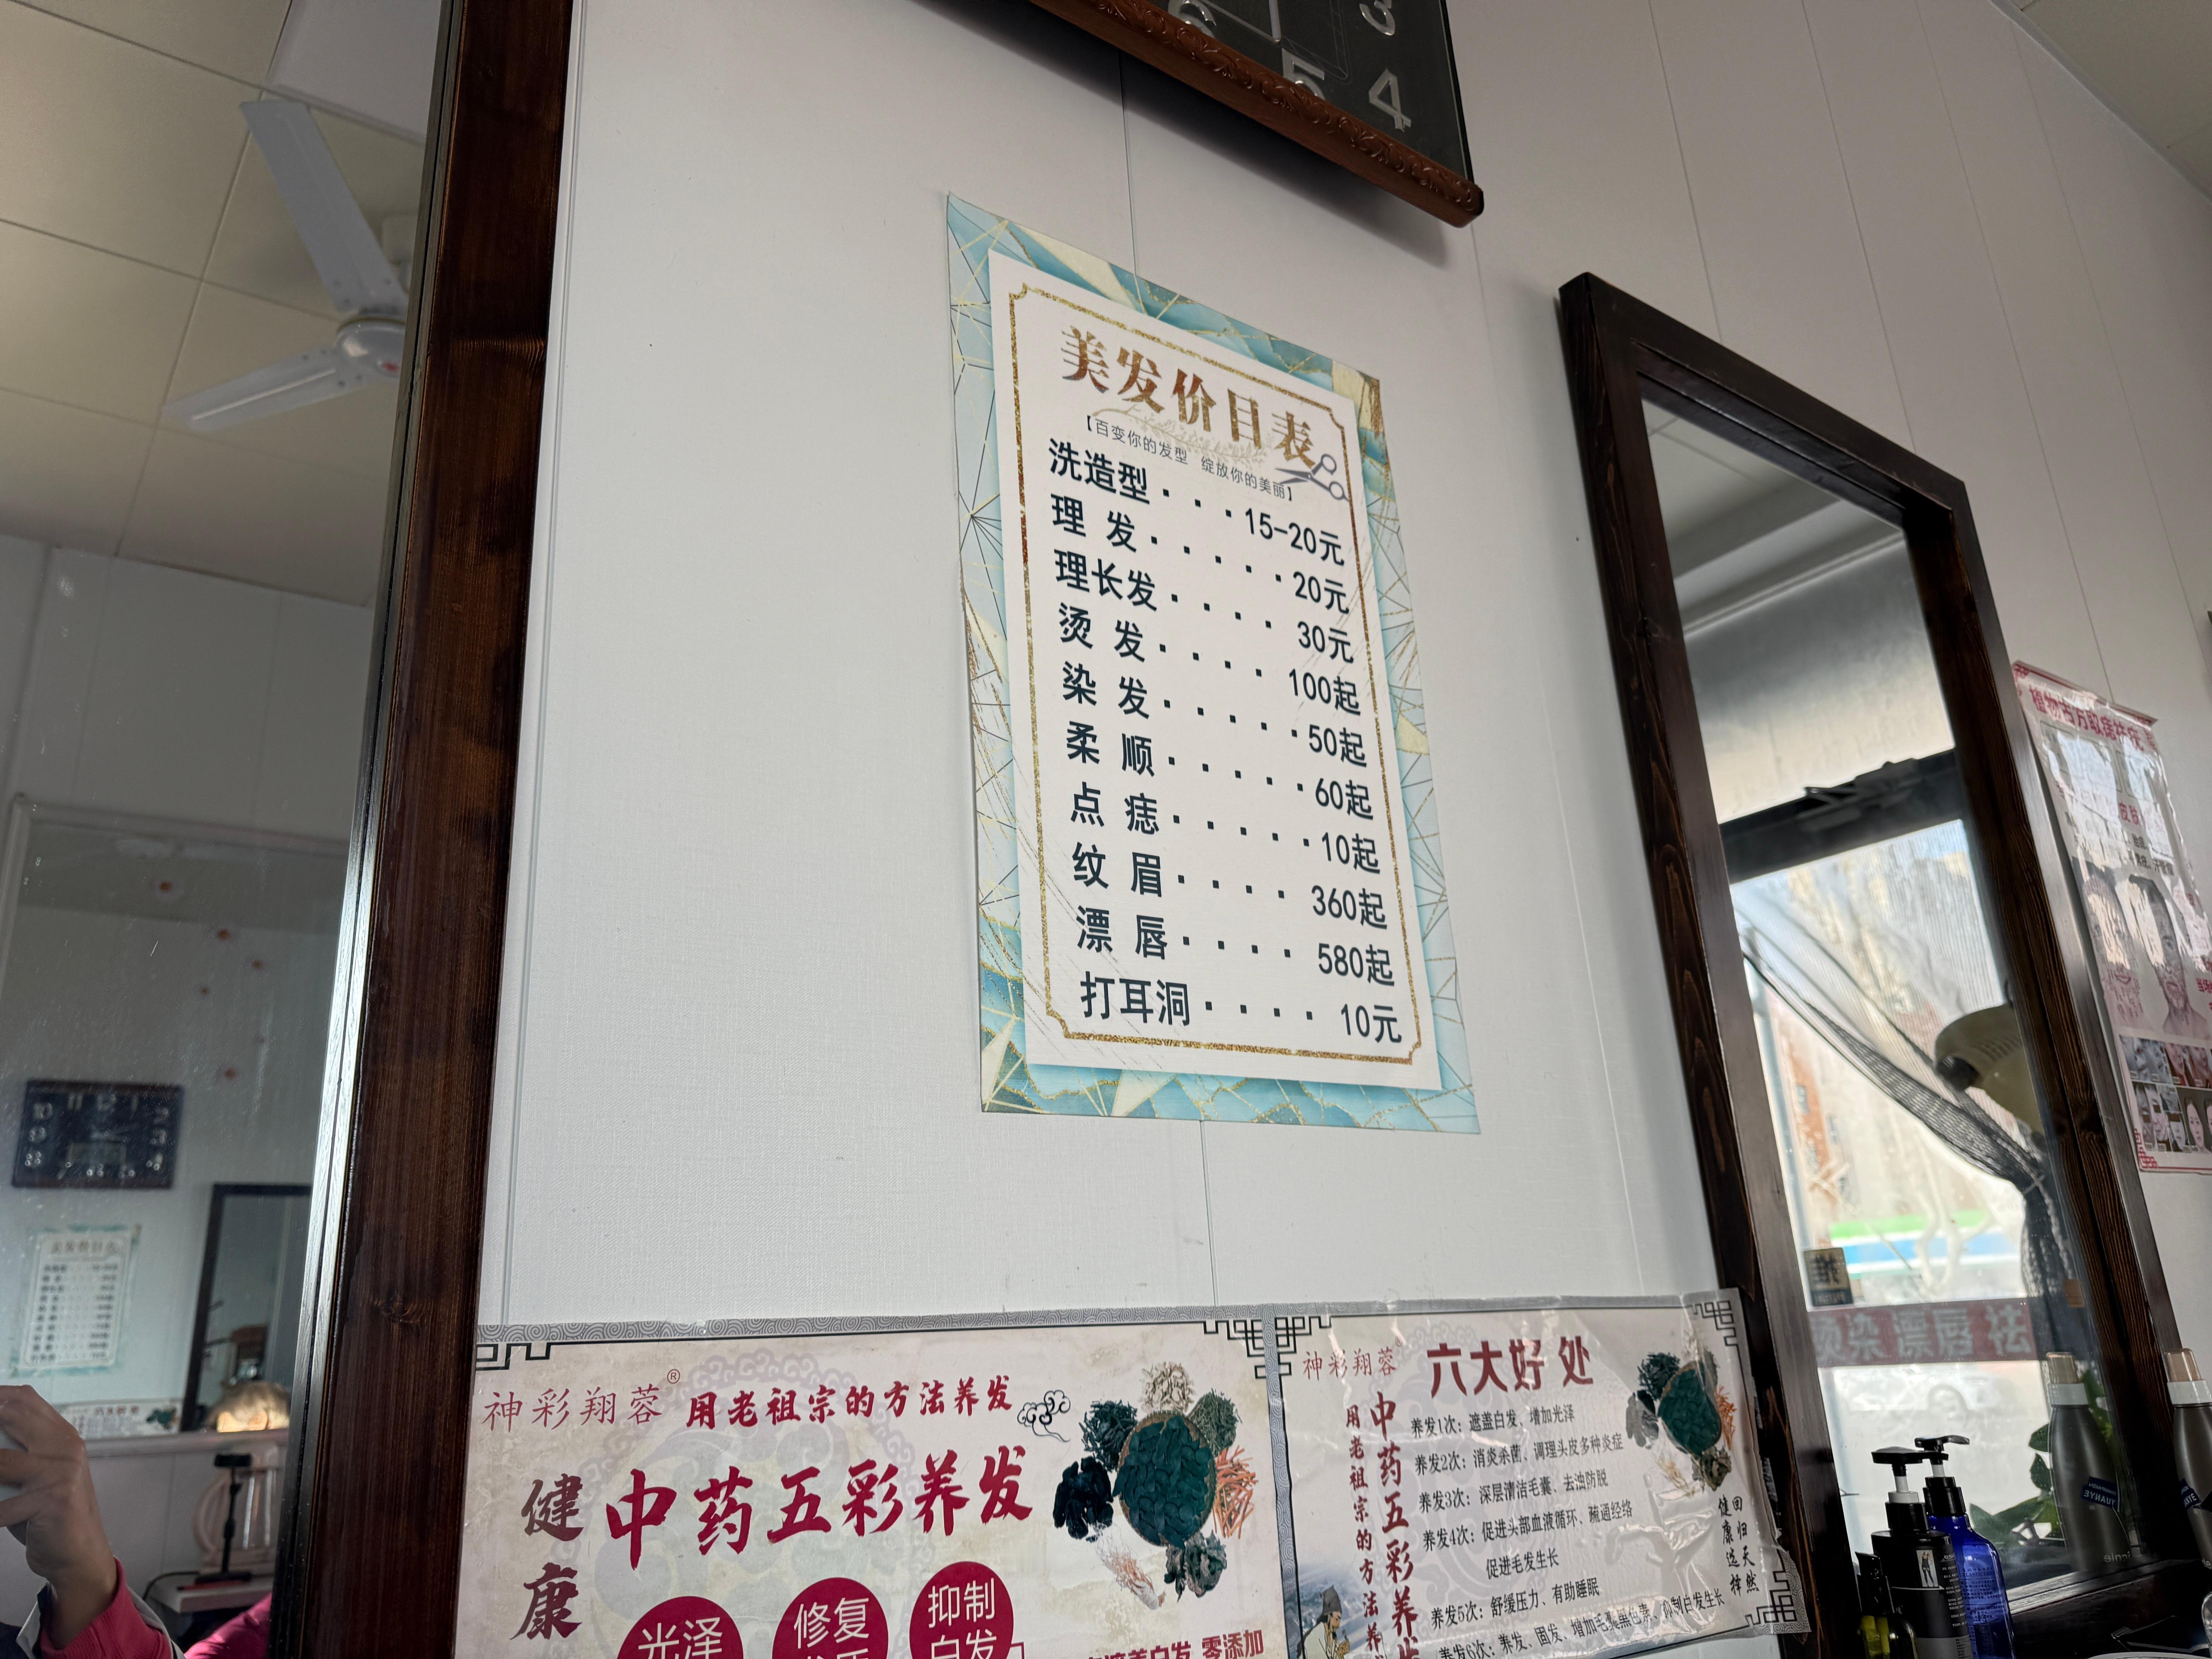 6
3
5
4
美发价目表
【百变你的发型 绽放你的美丽】
洗造型····15-20元
理 发·····20元
理长发····30元
烫 发····100起
染 发·····50起
柔 顺·····60起
点 痣·····10起
纹 眉····360起
漂 唇····580起
打耳洞····10元
神彩翔蓉® 用老祖宗的方法养发
健康
中药五彩养发
光泽
修复
抑制
白发
零添加
神彩翔蓉
六大好处
用老祖宗的方法养
中药五彩养发
养发1次：遮盖白发、增加光泽
养发2次：消炎杀菌、调理头皮多种炎症
养发3次：深层清洁毛囊、去浊防脱
养发4次：促进头部血液循环、疏通经络
促进毛发生长
养发5次：舒缓压力、有助睡眠
养发6次：养发、固发、增加毛囊黑色素、抑制白发生长
回归天然
健康选择
植物古方
烫染漂唇祛